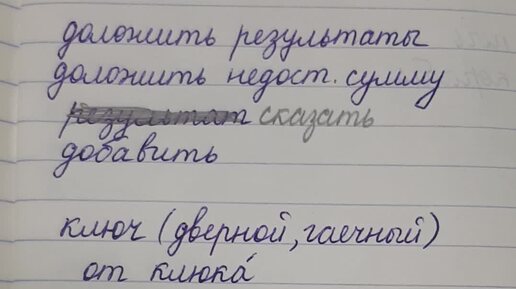 доложить результаты
доложить недост. сумму
результат сказать
добавить
ключ (дверной, гаечный)
от клюка́